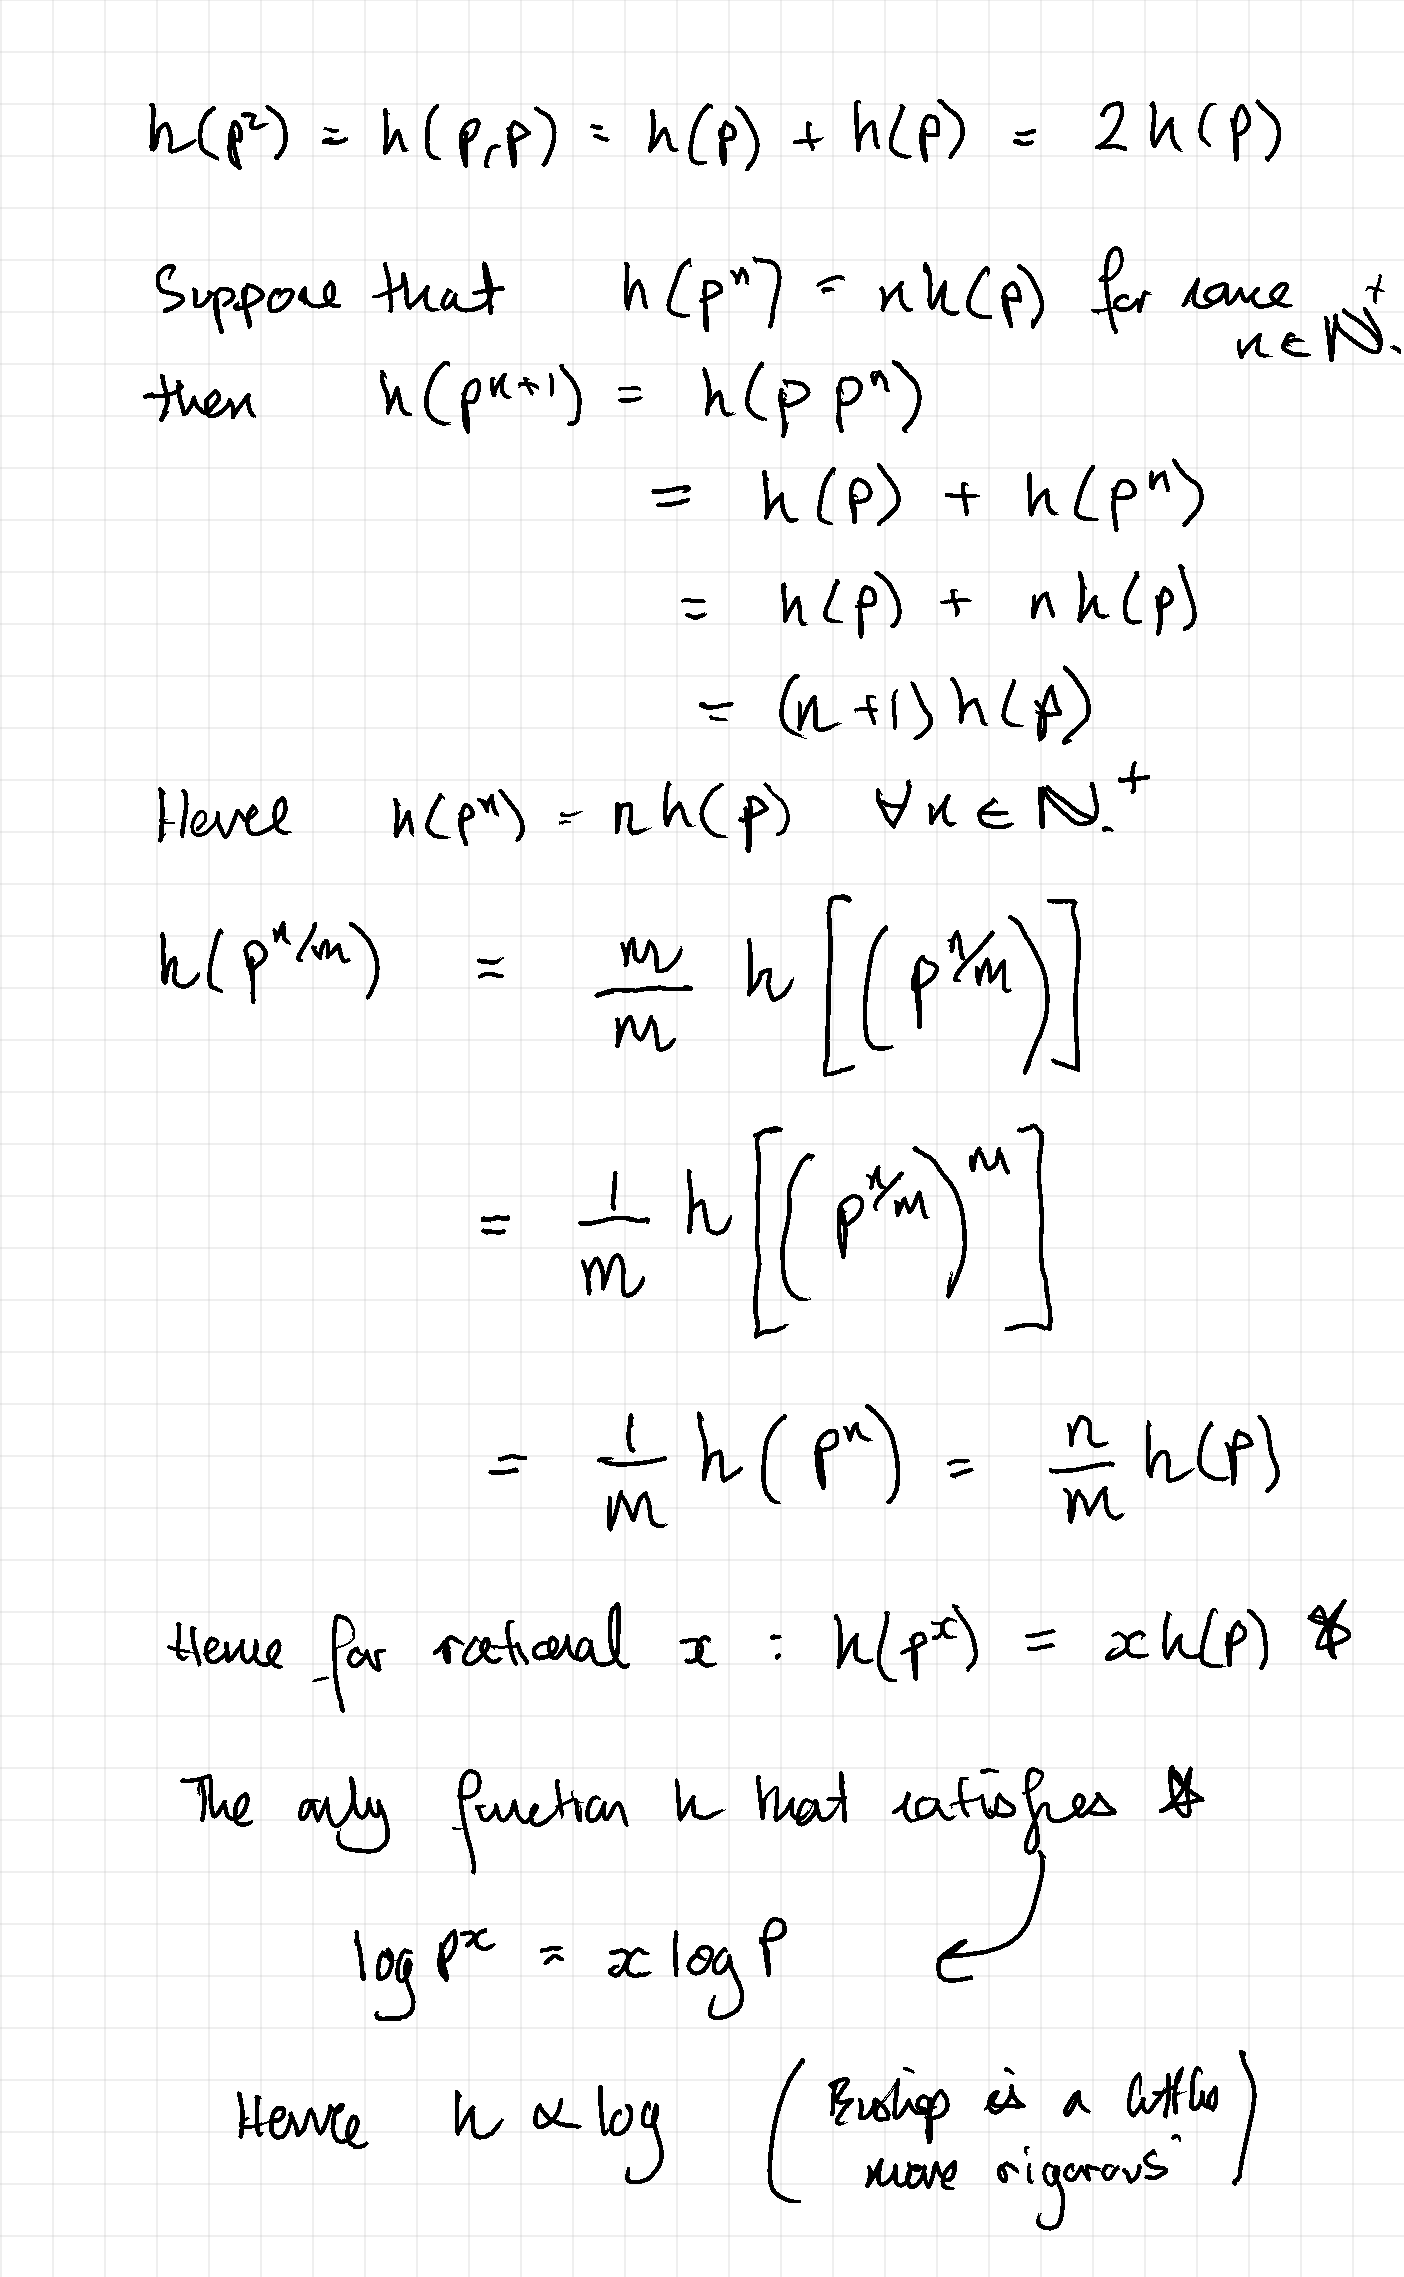 h(p²) = h(p,p) = h(p) + h(p) = 2h(p)
Suppose that h(pⁿ) = nh(p) for some n ∈ ℕ⁺.
then h(pⁿ⁺¹) = h(p pⁿ)
= h(p) + h(pⁿ)
= h(p) + nh(p)
= (n+1)h(p)
Hence h(pⁿ) = nh(p) ∀n ∈ ℕ.⁺
h(p^{n/m}) = m/m h[(p^{n/m})]
= 1/m h[(p^{n/m})^m]
= 1/m h(pⁿ) = n/m h(p)
Hence for rational x : h(pˣ) = xh(p) *
The only function h that satisfies *
log pˣ = x log p
Hence h ∝ log (Bishop is a little
more rigorous)